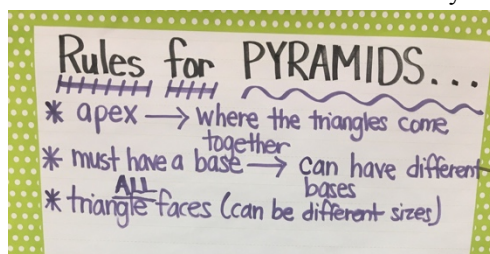 Rules for PYRAMIDS...
* apex → where the triangles come
together
* must have a base → can have different
bases
* ALL triangle faces (can be different sizes)